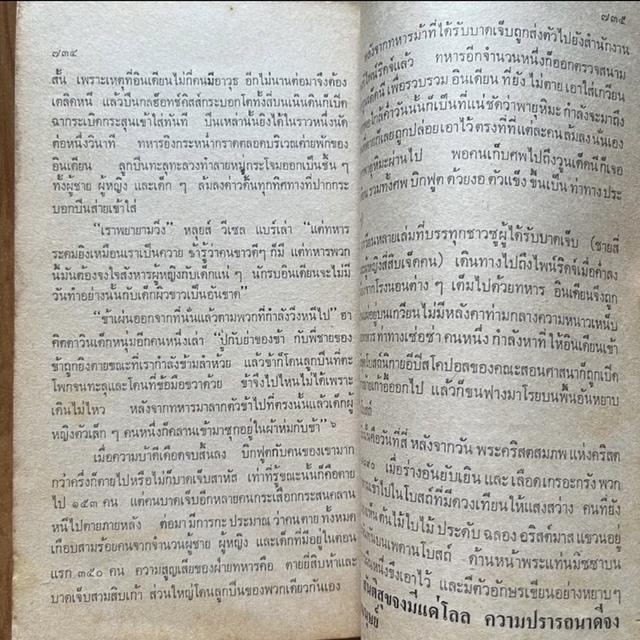 ๗๓๔
สั้น เพราะเหตุที่อินเดียนไม่กี่คนมีอาวุธ อีกไม่นานต่อมาจึงต้อง
เตลิดหนี แล้วปืนกลฮ็อทช์คิสส์กระบอกโตทั้งสี่บนเนินดินก็เปิด
ฉากระเบิดกระสุนเข้าใส่ทันที ปืนเหล่านั้นยิงได้ในราวหนึ่งนัด
ต่อหนึ่งวินาที ทหารองกระหน่ำกราดตลอดบริเวณค่ายพักของ
อินเดียน ลูกปืนทะลุทะลวงทำลายหมู่กระโจมออกเป็นชิ้น ๆ
ทั้งผู้ชาย ผู้หญิง และเด็ก ๆ ล้มลงคว่ำดิ้นทุกทิศทางที่ปากกระ
บอกปืนส่ายเข้าใส่
“เราพยายามวิ่ง” หลุยส์ วีเซล แบร์เล่า “แต่ทหาร
ระดมยิงเหมือนเราเป็นควาย ข้ารู้ว่าคนขาวดีๆ ก็มี แต่ทหารพวก
นั้นมันต้องจงใจสังหารผู้หญิงกับเด็กแน่ ๆ นักรบอินเดียนจะไม่มี
วันทำอย่างนั้นกับเด็กผิวขาวเป็นอันขาด”
“ข้าเผ่นออกจากที่นั่นแล้วตามพวกที่กำลังวิ่งหนีไป” ฮา
คิคตาวินเด็กหนุ่มอีกคนหนึ่งเล่า “ปู่กับย่าของข้า กับพี่ชายของ
ข้าถูกยิงตายขณะที่เรากำลังข้ามลำห้วย แล้วข้าก็โดนลูกปืนที่ตะ
โพกจนทะลุและโดนที่ข้อมือขวาด้วย ข้าจึงไปไหนไม่ได้เพราะ
เดินไม่ไหว หลังจากทหารมาลากตัวข้าไปที่ตรงนั้นแล้วเด็กผู้
หญิงตัวเล็ก ๆ คนหนึ่งก็คลานเข้ามาซุกอยู่ในผ้าห่มกับข้า” ๖
เมื่อความบ้าดีเดือดจบสิ้นลง บิกฟุตกับคนของเขามาก
กว่าครึ่งก็ตายไปหรือไม่ก็บาดเจ็บสาหัส เท่าที่รู้ขณะนั้นก็คือตาย
ไป ๑๕๓ คน แต่คนบาดเจ็บอีกหลายคนกระเสือกกระสนคลาน
หนีไปตายภายหลัง ต่อมา มีการกะ ประมาณ ว่าคน ตาย ทั้งหมด
เกือบสามร้อยคนจากจำนวนผู้ชาย ผู้หญิง และเด็กที่มีอยู่ในตอน
แรก ๓๕๐ คน ความสูญเสียของฝ่ายทหารคือ ตายยี่สิบห้าและ
บาดเจ็บสามสิบเก้า ส่วนใหญ่โดนลูกปืนของพวกเดียวกันเอง
๗๓๕
หลังจากทหารม้าที่ได้รับบาดเจ็บถูกส่งตัวไปยังสำนักงาน
ไพน์ริดจ์แล้ว ทหารอีกจำนวนหนึ่งก็ออกตรวจสนาม
เพื่อรวบรวม อินเดียน ที่ยัง ไม่ ตาย เอาใส่เกวียน
ใกล้ค่ำวันนั้นก็เป็นที่แน่ชัดว่าพายุหิมะ กำลังจะมาถึง
ตายก็เลย ถูกปล่อย เอาไว้ ตรงที่ที่แต่ละคน ล้มลง นั่นเอง
พายุหิมะผ่านไป พอคนเก็บศพไปถึงวูนเด็ดนีก็เจอ
รวมทั้งศพ บิกฟุต ด้วยงอ ตัวแข็ง ขึ้นเป็น ท่าทาง ประ
เกวียนหลายเล่มที่บรรทุกชาวซูผู้ได้รับบาดเจ็บ (ชายสี่
หญิงสี่สิบเจ็ดคน) เดินทางไปถึงไพน์ริดจ์เมื่อค่ำลง
โรงนอนต่าง ๆ เต็มไปด้วยทหาร อินเดียนจึงถูก
อยู่บนเกวียนไม่มีหลังคาท่ามกลางความหนาวเหน็บ
ท่าทางเซ่อซ่า คนหนึ่ง กำลังหาที่ ให้อินเดียนเข้า
โบสถ์นิกายอีปิสโคปอลของคณะสอนศาสนาก็ถูกเปิด
เก้าอี้ออกไป แล้วก็ขนฟางมาโรยบนพื้นอันหยาบ
คือวันที่สี่ หลังจากวัน พระคริสตสมภพ แห่งคริสต
เมื่อร่างอันยับเยิน และ เลือดเกรอะกรัง พวก
เข้าไปในโบสถ์ที่มีดวงเทียนให้แสงสว่าง คนที่ยัง
เห็น ต้นไม้ใบไม้ ประดับ ฉลอง คริสต์มาส แขวนอยู่
บนเพดานโบสถ์ ด้านหน้าพระแท่นมิซซาบน
หนึ่งขึงเอาไว้ และมีตัวอักษรเขียนอย่างหยาบๆ
สันติสุขจงมีแด่โลก ความปรารถนาดีจง
มนุษย์